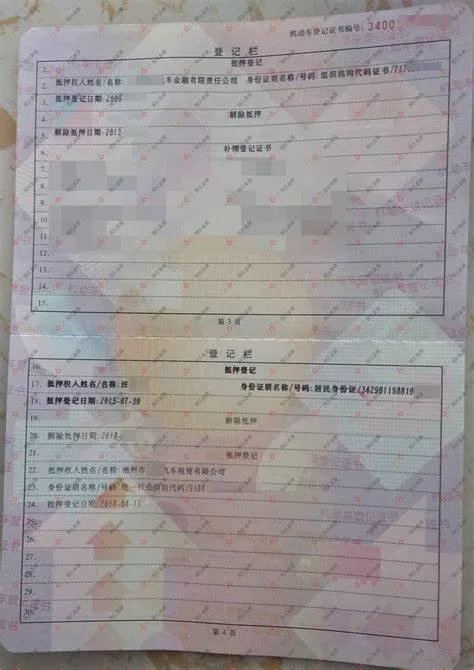 机动车登记证书编号: 3400
登记栏
1. 抵押登记
2. 抵押权人姓名/名称: 汽车金融有限责任公司 身份证明名称/号码: 组织机构代码证书/717
3. 抵押登记日期:2009
4. 解除抵押
5. 解除抵押日期:2013-
6. 补领登记证书
7.
8.
9.
10.
11.
12.
13.
14.
15.
第 3 页
登记栏
16. 抵押登记
17. 抵押权人姓名/名称: 汪 身份证明名称/号码: 居民身份证/342901198810
18. 抵押登记日期:2015-07-30
19. 解除抵押
20. 解除抵押日期:2018-
21. 抵押登记
22. 抵押权人姓名/名称: 池州市 汽车租赁有限公司
23. 身份证明名称/号码: 统一社会信用代码/
24. 抵押登记日期:2018-04-13
25.
26.
27.
28.
29.
30.
第 4 页